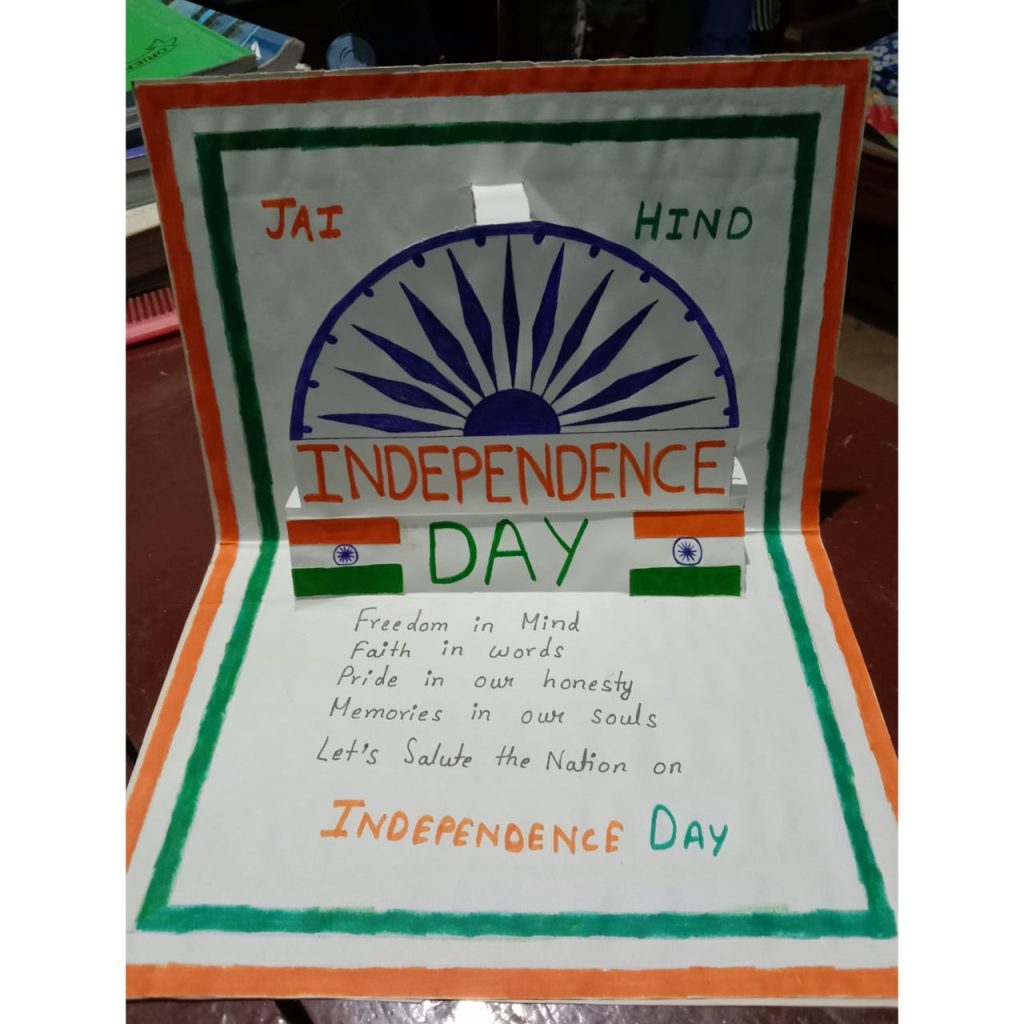 JAI HIND
INDEPENDENCE
DAY
Freedom in Mind
Faith in words
Pride in our honesty
Memories in our souls
Let's Salute the Nation on
INDEPENDENCE DAY